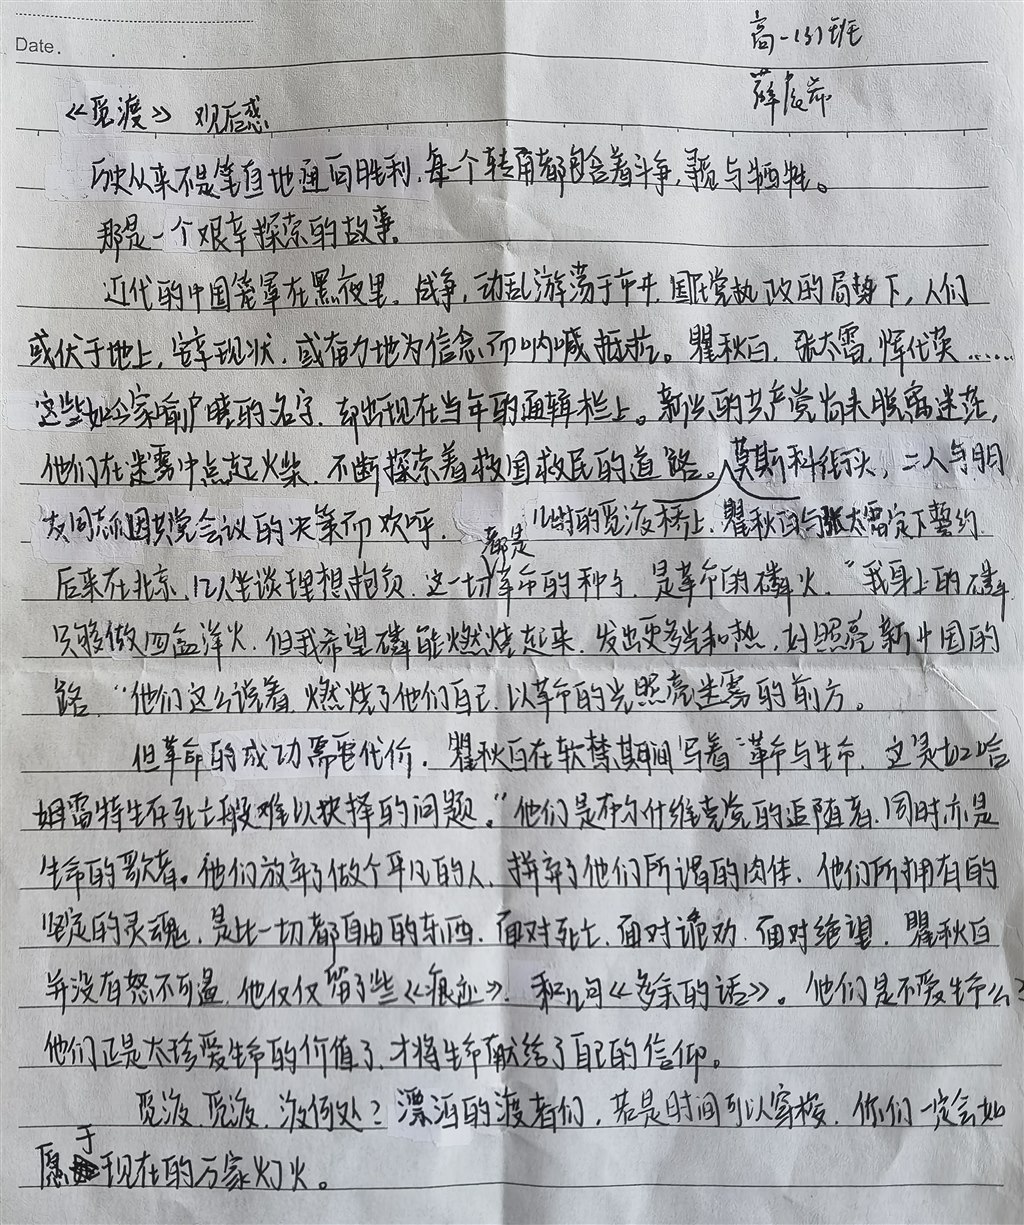 Date.
高一(3)班
薛
《觅渡》 观后感
历史从来不是笔直地通向胜利,每一个转角都包含着斗争,寻觅与牺牲。
那是一个艰辛探索的故事。
近代的中国笼罩在黑夜里。战争,动乱游荡于市井,国民党执政的局势下,人们
或伏于地上,安享现状,或奋力地为信念而呐喊抵抗。瞿秋白,张太雷,恽代英......
这些如今家喻户晓的名字,却出现在当年的通辑栏上。新兴的共产党尚未脱离迷茫,
他们在迷雾中点起火柴,不断探索着救国救民的道路。莫斯科街头,二人与朋
友同志因共党会议的决策而欢呼, 儿时的觅渡桥上,瞿秋白与张太雷定下誓约
都是
后来在北京,几人坐谈理想抱负,这一切革命的种子,是革命的磷火,“我身上的磷
只够做四盒洋火,但我希望磷能燃烧起来,发出更多光和热,好照亮新中国的
路,“他们这么说着,燃烧了他们自己,以革命的光照亮迷雾的前方。
但革命的成功需要代价。瞿秋白在软禁期间写着“革命与生命,这是如哈
姆雷特生存死亡般难以抉择的问题。”他们是布尔什维克党的追随者,同时亦是
生命的歌者。他们放弃了做个平凡的人,摒弃了他们所谓的肉体,他们所拥有的
坚定的灵魂,是比一切都自由的东西,面对死亡,面对诡劝,面对绝望,瞿秋白
并没有怒不可遏,他仅仅留了些《痕迹》,和几句《多余的话》。他们是不爱生命么?
他们正是太珍爱生命的价值了,才将生命献给了自己的信仰。
觅渡,觅渡,渡何处?漂泊的渡者们,若是时间可以穿梭,你们一定会如
愿于现在的万家灯火。